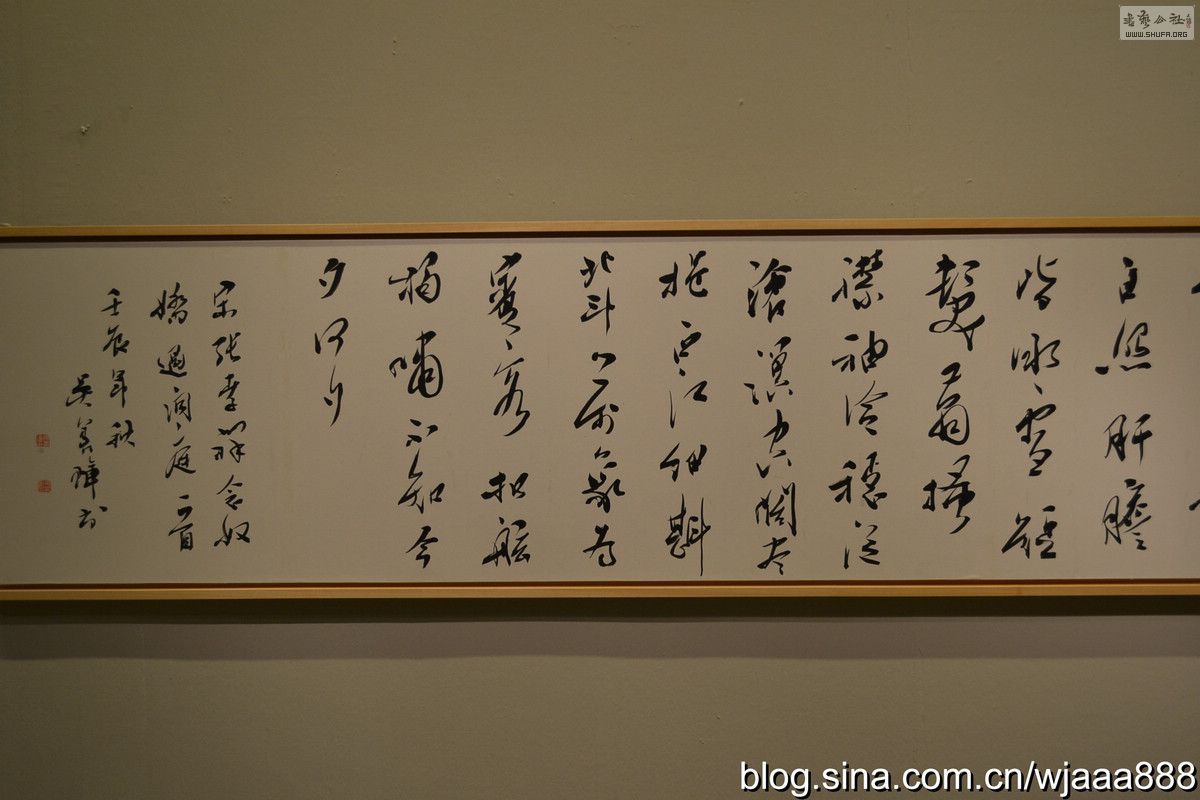 自照肝膽
皆冰雪短
髮蕭搔
襟袖冷穩泛
滄溟空闊盡
挹西江細斟
北斗萬象為
賓客扣舷
獨嘯不知今
夕何夕
宋張孝祥念奴
嬌過洞庭一首
壬辰年秋
吳善璋书
书艺公社
WWW.SHUFA.ORG
blog.sina.com.cn/wjaaa888